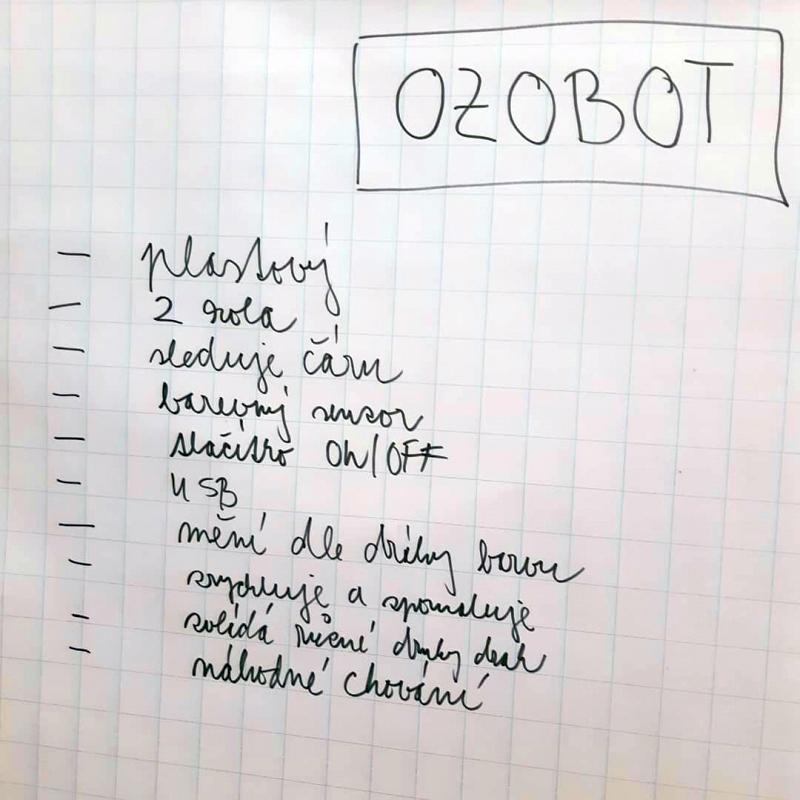 OZOBOT
– plastový
– 2 kola
– sleduje čáru
– barevný senzor
– tlačítko ON/OFF
– USB
– mění dle dráhy barvu
– zrychluje a zpomaluje
– zvládá různé druhy drah
– náhodné chování